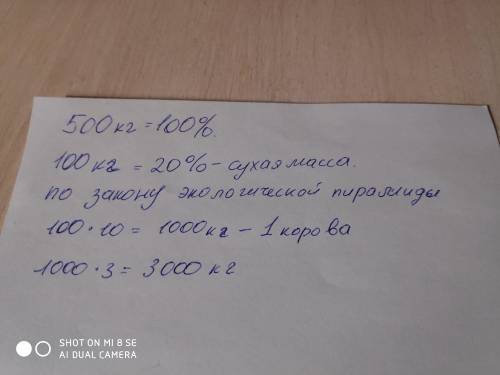 500кг = 100%.
100кг = 20% - сухая масса.
по закону экологической пирамиды
100 · 10 = 1000кг - 1 корова
1000 · 3 = 3000 кг
SHOT ON MI 8 SE
AI DUAL CAMERA